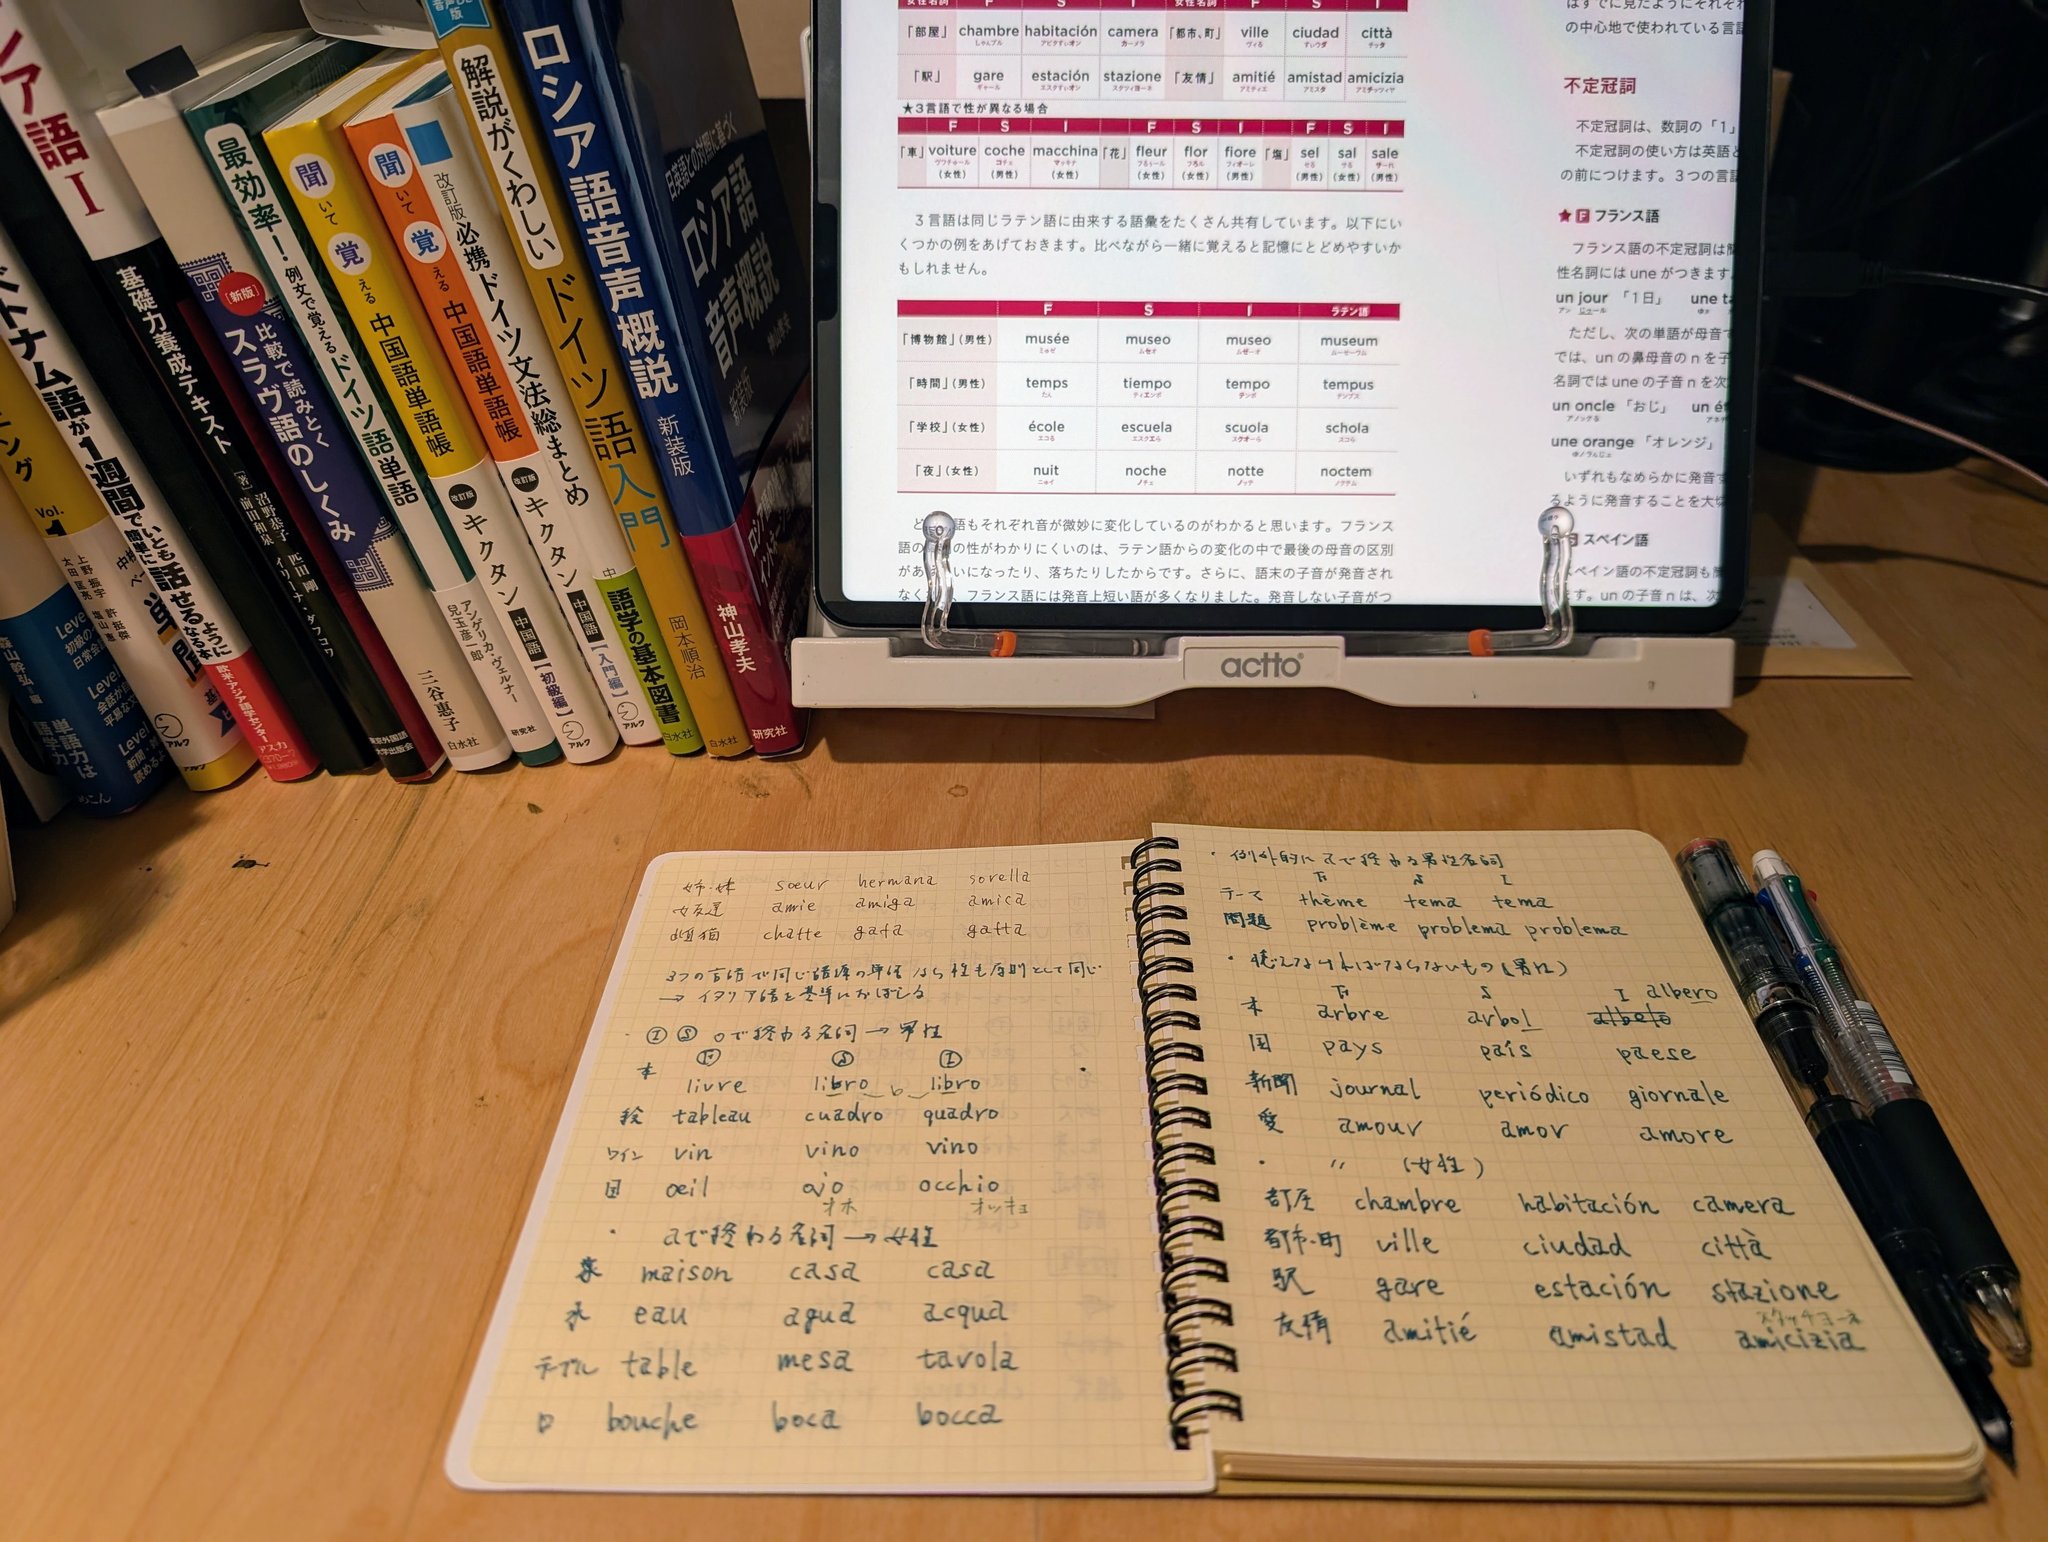 ロシア語 I
ベトナム語が1週間で簡単に
いとも話せるようになる本
欧米・アジア語学センター
アスカ
Vol.1
上野 振宇
太田 匡亮
単語力は
語学力
めこん
アルク
基礎力養成テキスト
[著] 沼野恭子 匹田 剛
前田和泉 イリーナ・ダフコワ
東京外国語
大学出版会
[新版]
比較で読みとく
スラヴ語のしくみ
三谷惠子
白水社
最効率!
例文で覚えるドイツ語単語
アンゲリカ・ヴェルナー
兒玉彦一郎
研究社
聞いて覚える中国語単語帳
改訂版
キクタン
中国語
【初級編】
アルク
聞いて覚える中国語単語帳
改訂版
キクタン
中国語
【入門編】
アルク
改訂版
必携ドイツ文法総まとめ
語学の基本図書
白水社
音声DL版
解説がくわしい
ドイツ語入門
岡本順治
白水社
ロシア語音声概説
新装版
神山孝夫
研究社
日英語との対照に基づく
ロシア語
音声概説
新装版
女性名詞 F S I 女性名詞 F S I
「部屋」 chambre habitación camera 「都市、町」 ville ciudad città
しゃんブル アビタすぃオン カーメラ ヴィる すぃウダ チッタ
「駅」 gare estación stazione 「友情」 amitié amistad amicizia
ギャール エスタすぃオン スタツィヨーネ アミティエ アミスタ アミチッツィヤ
★3言語で性が異なる場合
F S I F S I F S I
「車」 voiture coche macchina 「花」 fleur flor fiore 「塩」 sel sal sale
(女性) (男性) (女性) (女性) (女性) (男性) (男性) (女性) (男性)
3言語は同じラテン語に由来する語彙をたくさん共有しています。以下にい
くつかの例をあげておきます。比べながら一緒に覚えると記憶にとどめやすいか
もしれません。
F S I ラテン語
「博物館」(男性) musée museo museo museum
ミュゼ ムセオ ムゼーオ ムーゼーウム
「時間」(男性) temps tiempo tempo tempus
たん ティエンポ テンポ テンプス
「学校」(女性) école escuela scuola schola
エコる エスクエら スクオーら スコら
「夜」(女性) nuit noche notte noctem
ニュイ ノチェ ノッテ ノクテム
語もそれぞれ音が微妙に変化しているのがわかると思います。フランス
語の の性がわかりにくいのは、ラテン語からの変化の中で最後の母音の区別
があ いになったり、落ちたりしたからです。さらに、語末の子音が発音され
なく 、フランス語には発音上短い語が多くなりました。発音しない子音がつ
はすでに見たようにそれぞれ
の中心地で使われている言語
不定冠詞
不定冠詞は、数詞の「1」
不定冠詞の使い方は英語と
の前につけます。3つの言語
★ F フランス語
フランス語の不定冠詞は
性名詞には une がつきます。
un jour 「1日」 une ta
アン じゅール ゆヌ
ただし、次の単語が母音で
では、un の鼻母音の n を子
名詞では une の子音 n を次
un oncle 「おじ」 un é
アノンクる アネ
une orange 「オレンジ」
ゆノらんじュ
いずれもなめらかに発音す
るように発音することを大切
スペイン語
スペイン語の不定冠詞も
ます。un の子音 n は、次
actto
姉・妹 soeur hermana sorella
女友達 amie amiga amica
雌猫 chatte gata gatta
3つの言語で同じ語源の単語なら性も原則として同じ
→ イタリア語を基準におぼえる
・ Ⓘ Ⓢ oで終わる名詞 → 男性
Ⓕ Ⓢ Ⓘ
本 livre libro b libro
絵 tableau cuadro quadro
ワイン vin vino vino
目 œil ojo occhio
オホ オッキョ
・ aで終わる名詞 → 女性
家 maison casa casa
水 eau agua acqua
テーブル table mesa tavola
口 bouche boca bocca
・例外的に aで終わる男性名詞
F S I
テーマ thème tema tema
問題 problème problema problema
・覚えなければならないもの(男性)
F S I albero
木 arbre arbol albelo
国 pays país paese
新聞 journal periódico giornale
愛 amour amor amore
・ 〃 (女性)
部屋 chambre habitación camera
都市・町 ville ciudad città
駅 gare estación stazione
スタッチョーネ
友情 amitié amistad amicizia